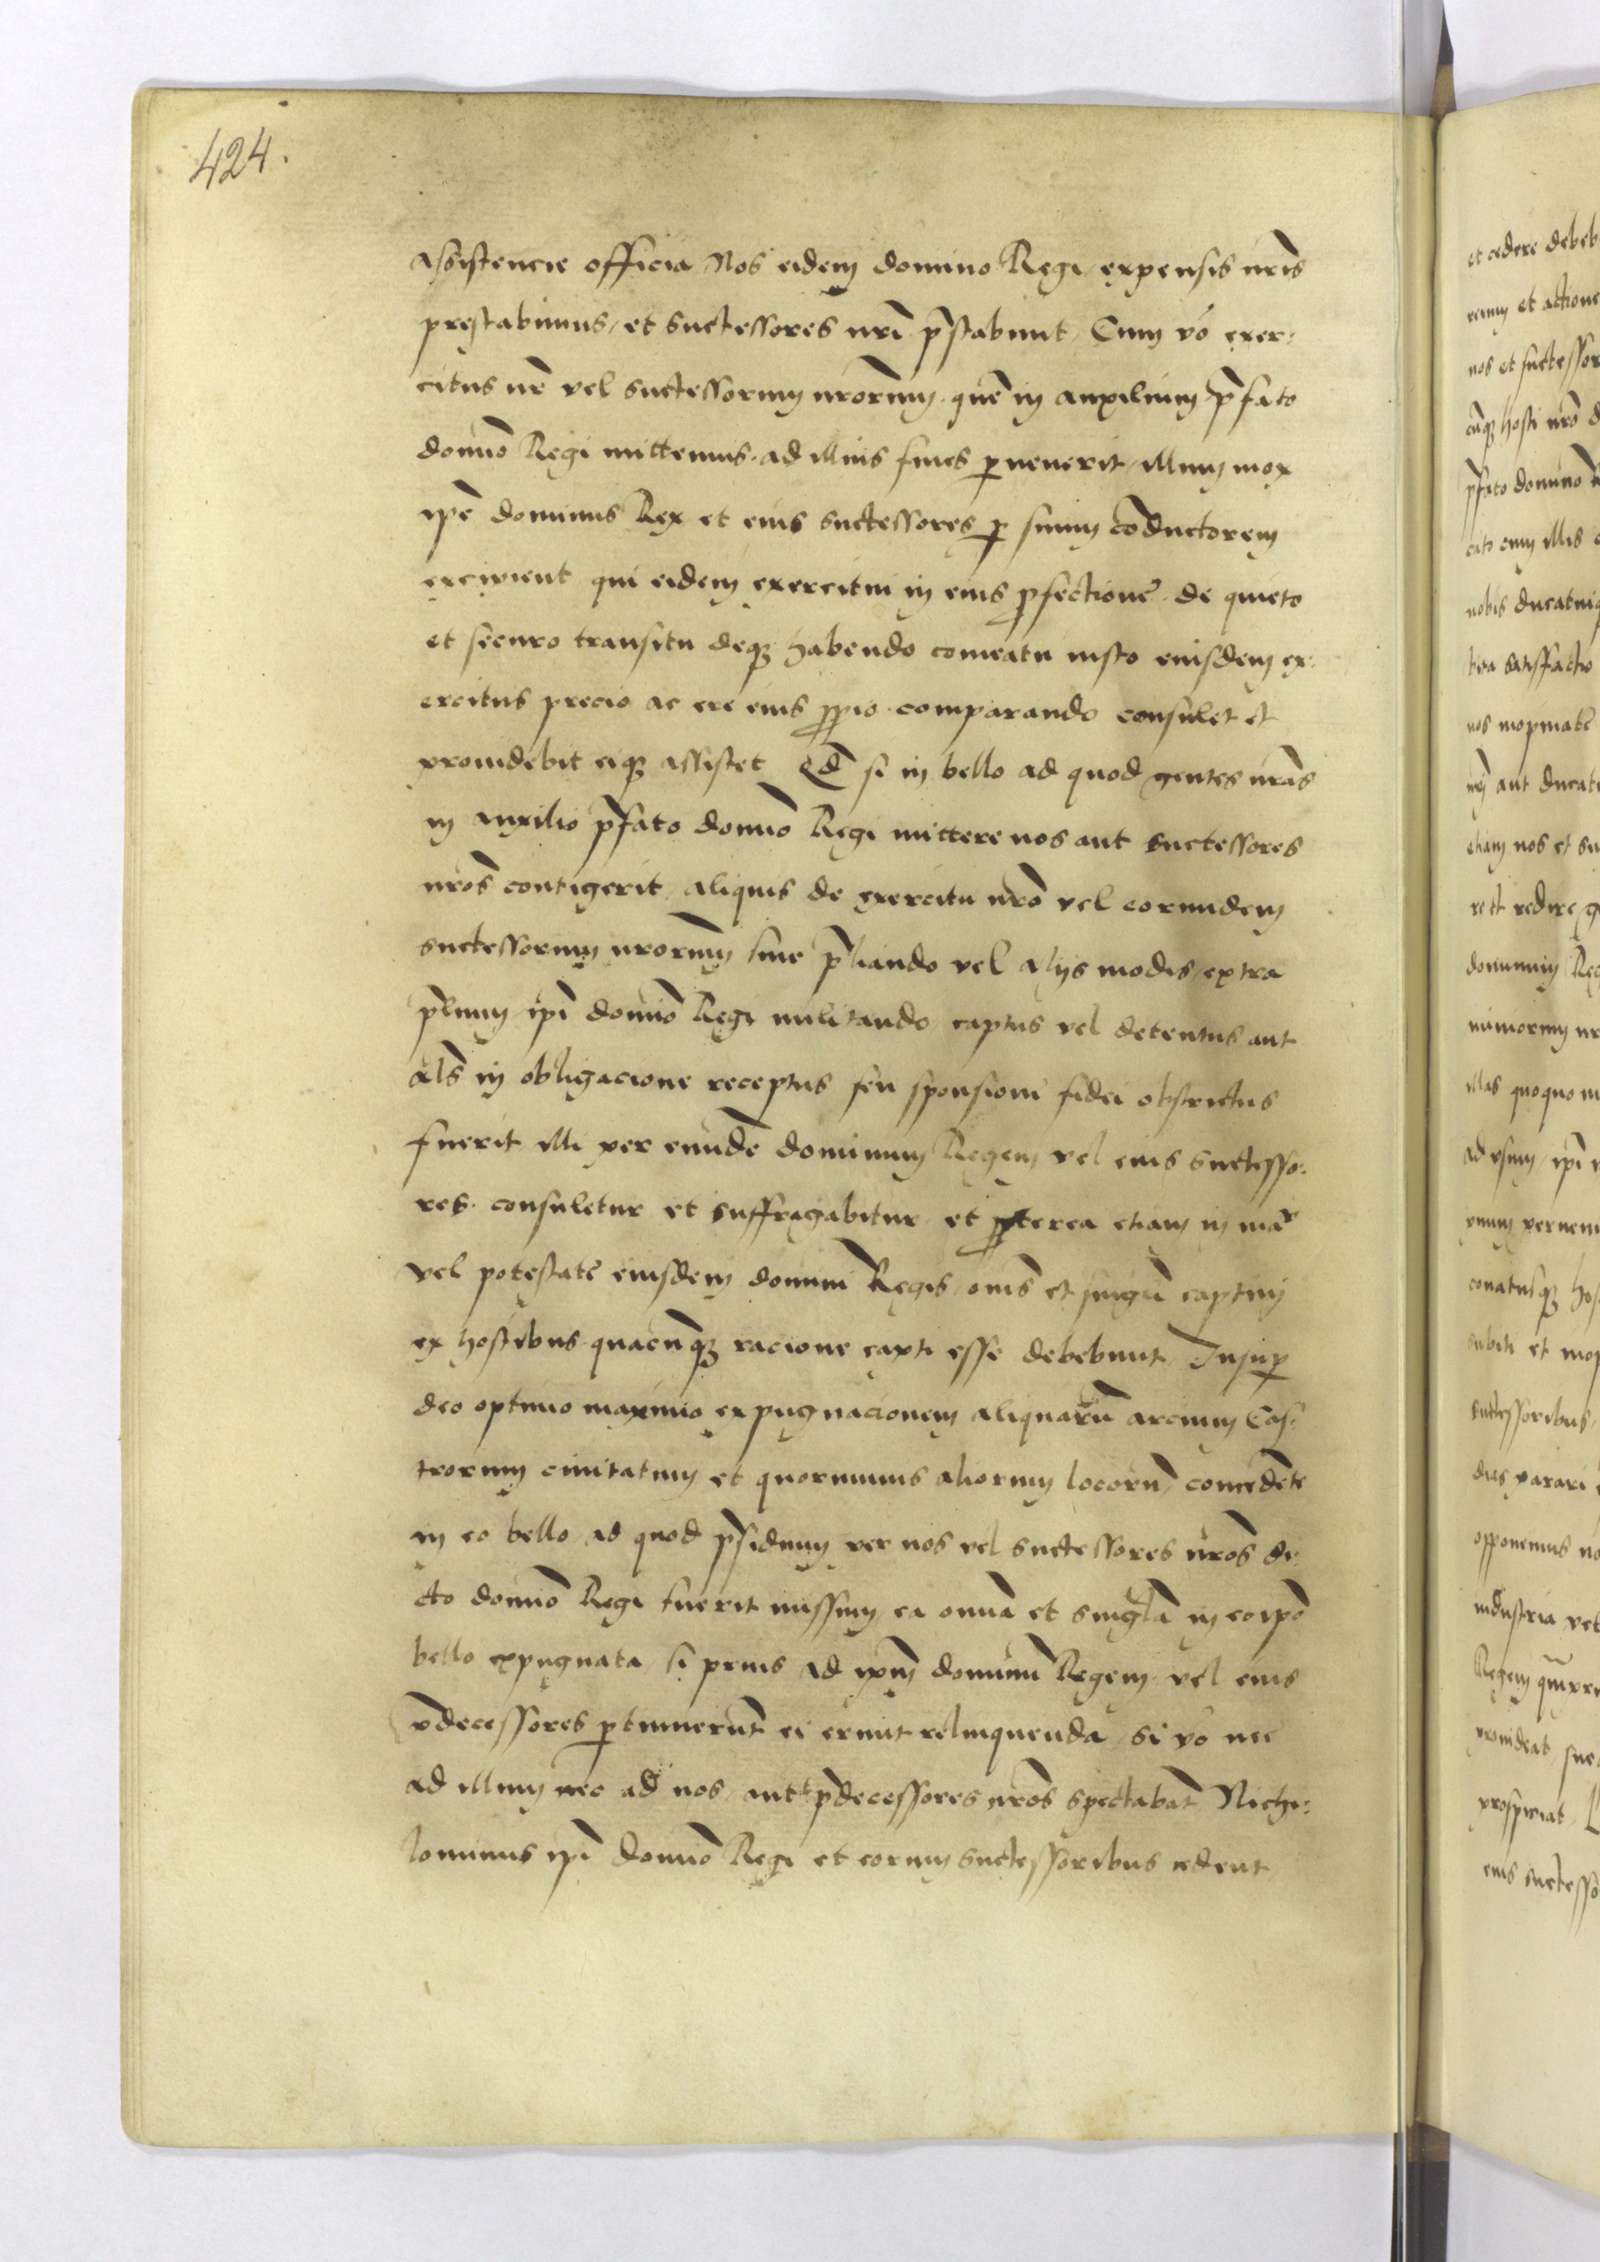 424.
assistencie officia Nos eidem domino Regi expensis nris
prestabimus, et successores nri pstabunt, Cum vo exer:
citus nr vel successorum nrorum quem in auxilium pfato
domino Regi mittemus ad illius fines pvenerit, illum mox
ipe dominus Rex et eius successores p suum coductorem
excipient qui eidem exercitui in eius pfectione de quieto
et securo transitu deq habendo comeatu iusto eiusdem ex:
ercitus precio ac ere eius pprio comparando consulet et
providebit eiq assistet Qd si in bello ad quod gentes nras
in auxilio pfato domino Regi mittere nos aut successores
nros contigerit, aliquis de exercitu nro vel eorundem
successorum nrorum sive pliando vel alijs modis extra
plium ipi domino Regi militando captus vel detentus aut
als in obligacione receptus seu sponsioni fidei obstrictus
fuerit illi per eundem dominum Regem vel eius successo:
res consuletur et suffragabitur et ppterea etiam in ma
vel potestate eiusdem domini Regis, oms et singuli captivi
ex hostibus quacunq racione capti esse debebunt, Insup
deo optimo maximo expugnacionem aliquarum arcium Cas:
trorum civitatum et quorumvis aliorum locorum concedente
in eo bello ad quod psidium per nos vel successores nros di:
cto domino Regi fuerit missum ea omnia et singula in eo ipo
bello expugnata, si prius ad ipm dominum Regem vel eius
pdecessores ptinuerunt ei erunt relinquenda, si vo nec
ad illum nec ad nos, aut pdecessores nros spectabat Nichi:
lominus ipi domino Regi et eorum successoribus cedent
et cedere debeb
nos et successor
hosti nro
pfato domino
cum illis
nobis
satisfactio
aut ducat
etiam nos et su
redire
dominum Reg
illas quoquo m
ad usum ipi
et mox
successoribus
parari
opponemus
industria vel
Regem
provideat
prospiciat
eius successo